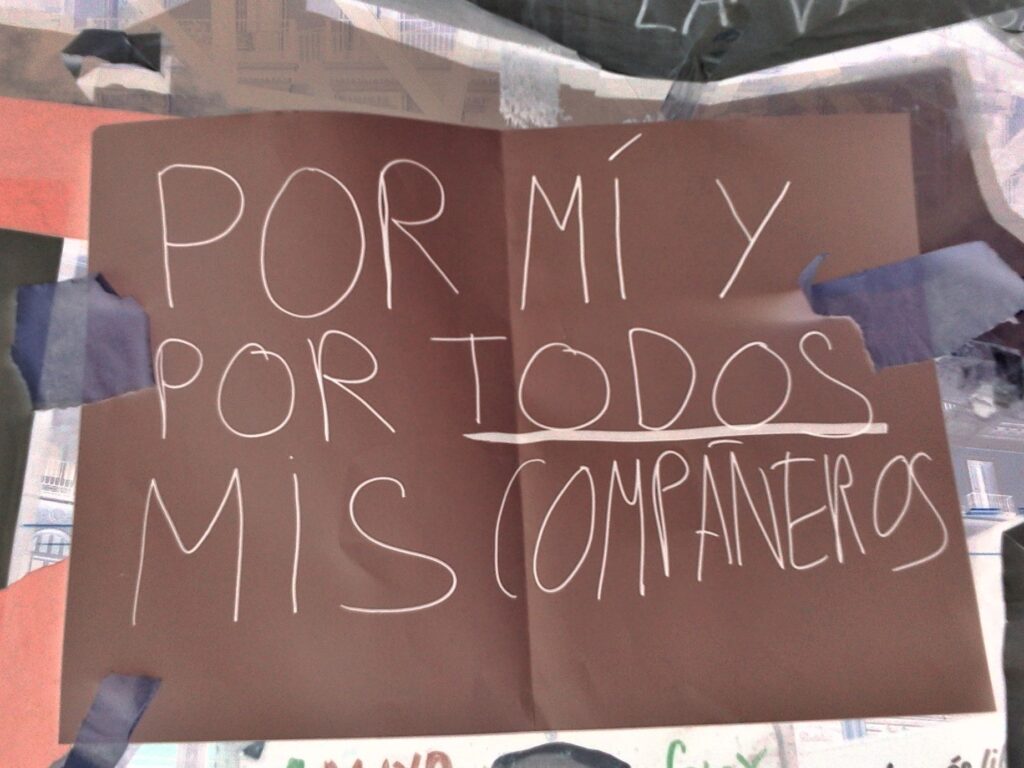 LA V
POR MÍ Y
POR TODOS
MIS COMPAÑEROS